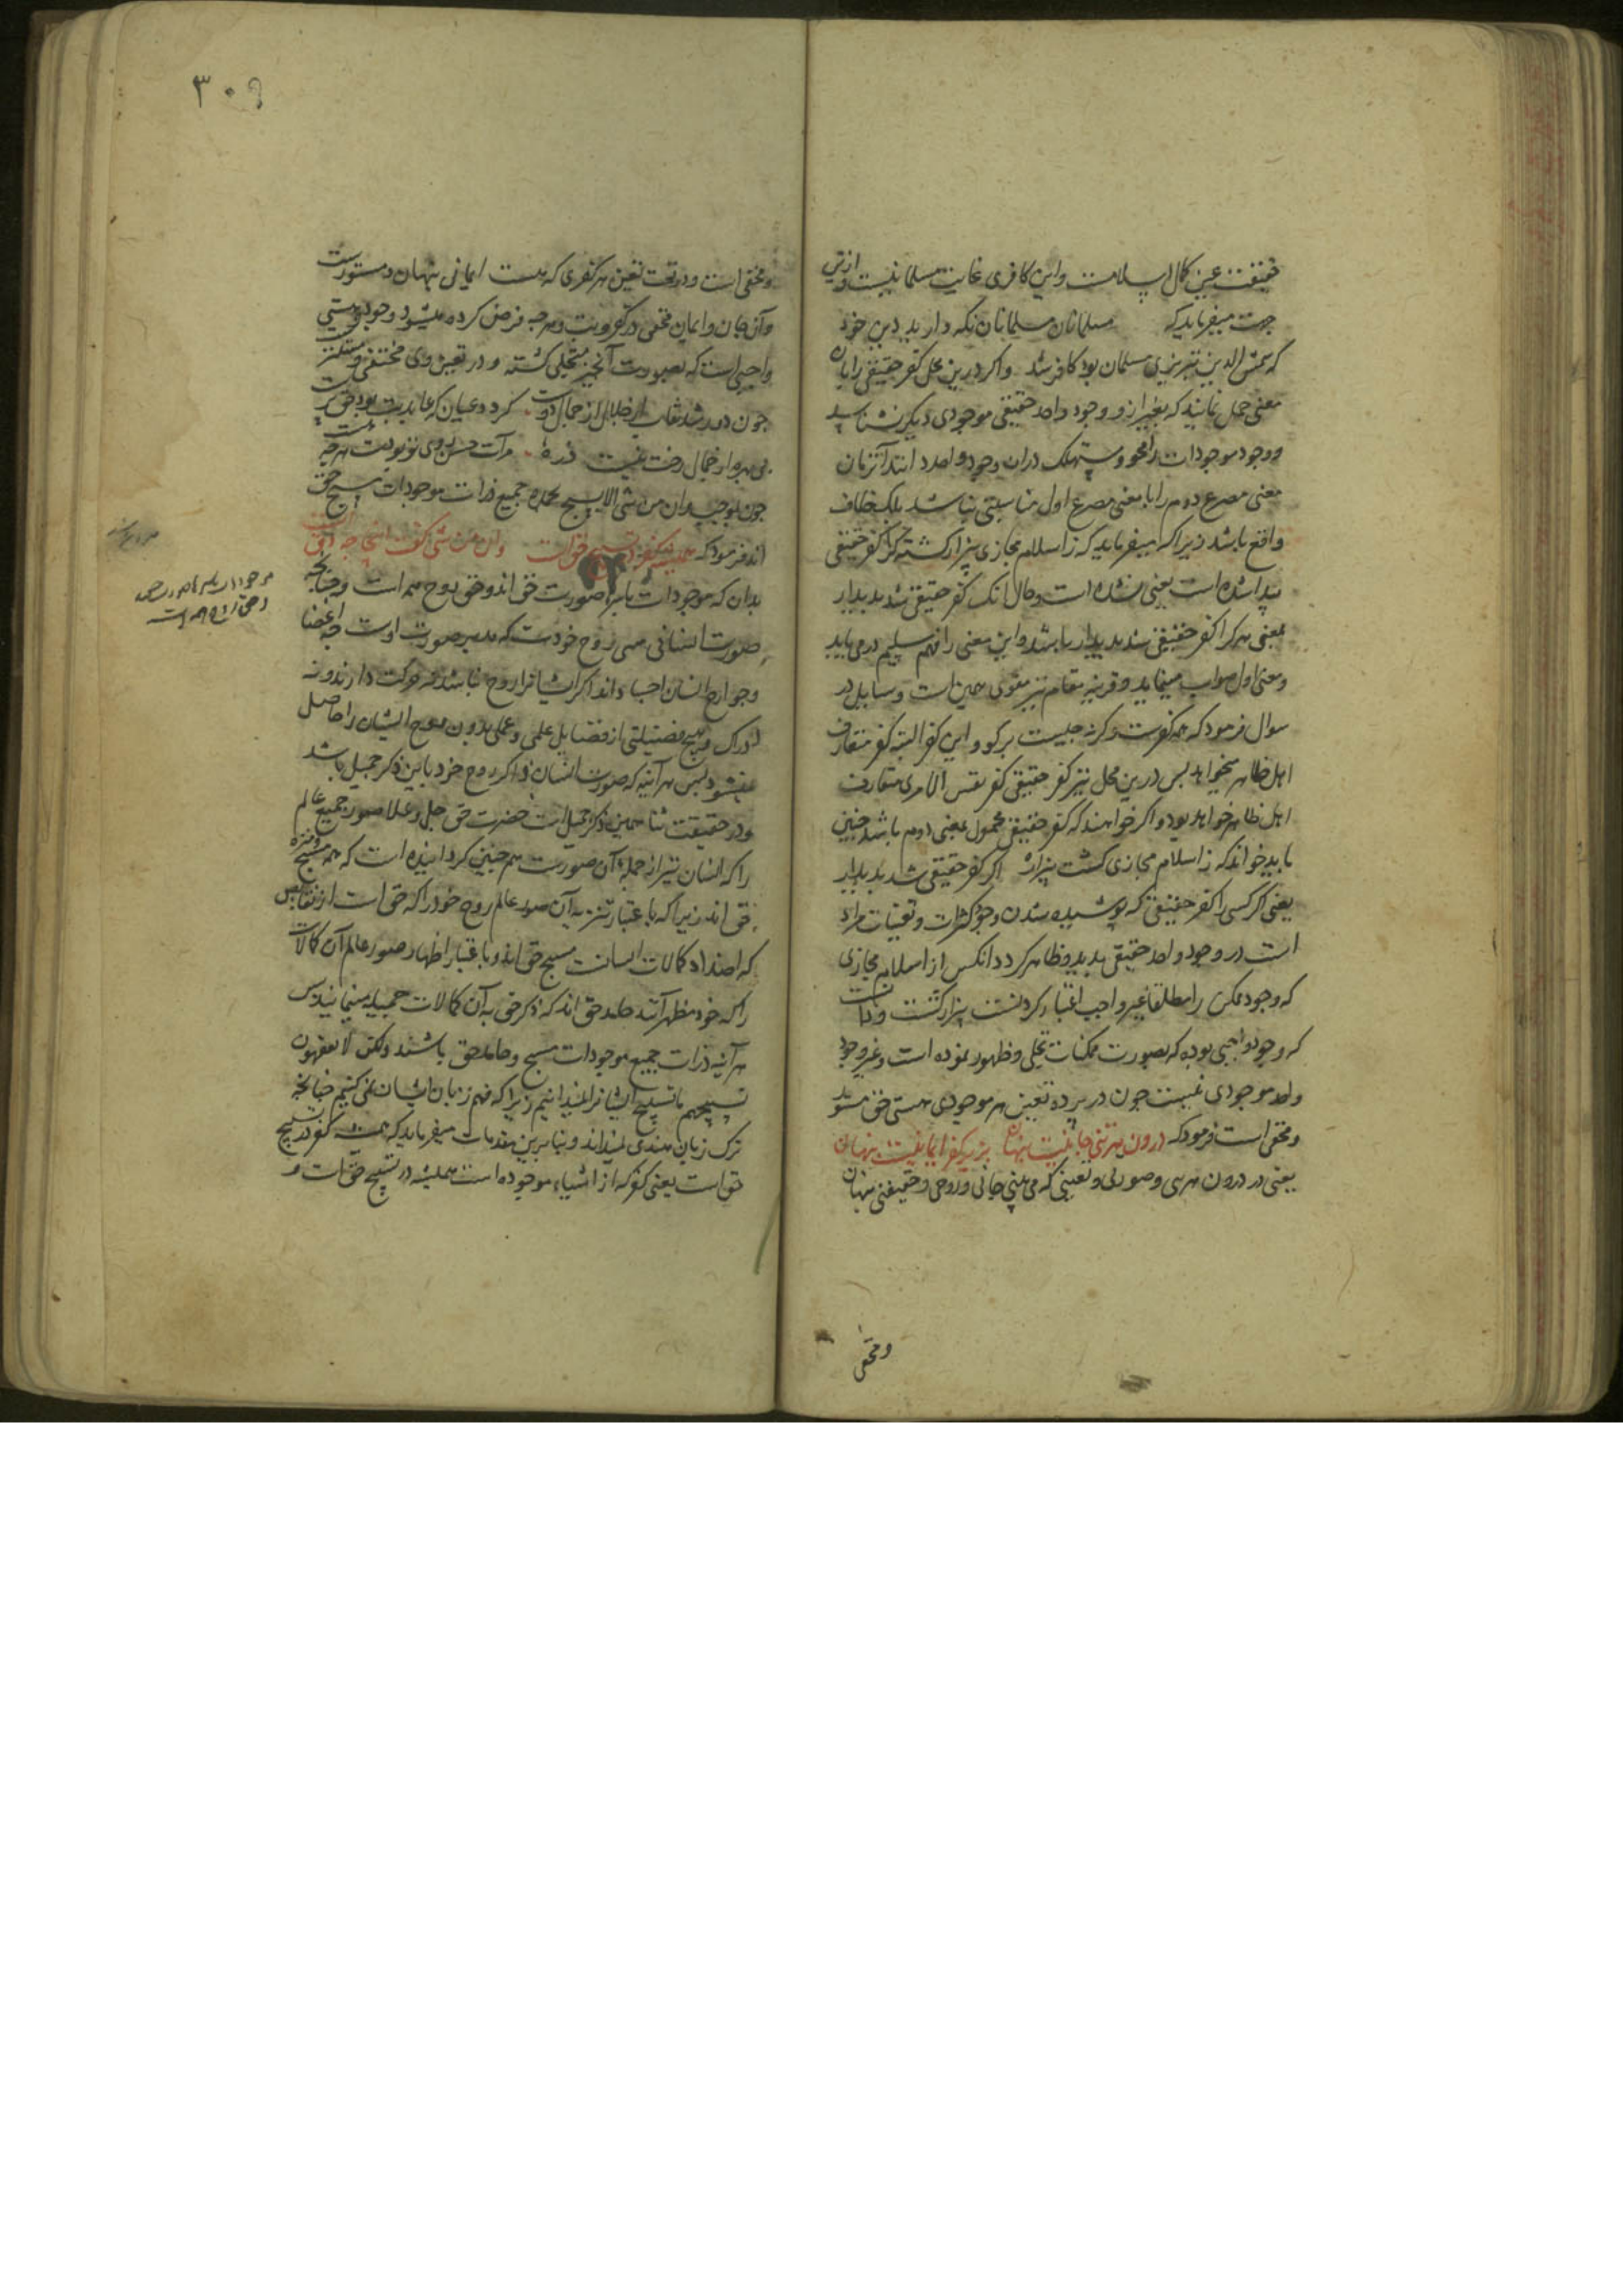 حقیقت عین کمال اسلامست و این کافری غایت مسلمانیست و ازین
جهت میفرماید که مسلمانان مسلمانان نکه دارید دین خود
که شمس الدین تبریزی مسلمان بود کافر شد و اکر درین محل کفر حقیقی را بآن
معنی حمل نمایند که بغیر از وجود واحد حقیقی موجودی دیکر نشناسد
و وجود موجودات را محو و مستهلک در آن وجود واحد دانند آنزمان
معنی مصرع دوم را با معنی مصرع اول مناسبتی نباشد بلک خلاف
واقع باشد زیرا که میفرماید که ز اسلام مجازی بیزار کشته کرا کفر حقیقی
پیدا شده است یعنی نشده است و حال آنک کفر حقیقی شد پدیدار
بمعنی هر کرا کفر حقیقی شد پدیدار باشد و این معنی را فهم سلیم در می یابد
و معنی اول صواب مینماید و قرینه مقام نیز مقوی همین است و سایل در
سوال فرمود که همه کفرست و کرنه چیست بر کو و این کفر البته کفر متعارف
اهل ظاهر میخواهد پس درین محل نیز کفر حقیقی کفر نفس الامری متعارف
اهل ظاهر خواهد بود و اکر خواهند که کفر حقیقی محمول بمعنی دوم باشد چنین
باید خواند که ز اسلام مجازی کشت بیزار اکر کفر حقیقی شد پدیدار
یعنی اکر کسی را کفر حقیقی که پوشیده شدن وجود کثرات و تعینات مراد
است در وجود واحد حقیقی پدید و ظاهر کردد آنکس از اسلام مجازی
که وجود ممکن را مطلقا غیر واجب اعتبار کردنست بیزار کشت و دانست
که وجود واجبی بوده که بصورت ممکنات تجلی و ظهور نموده است و غیر وجود
واحد موجودی نیست چون در پرده تعین هر موجودی هستی حق مستور
و مخفی است فرمود که درون هر تنی جانیست پنهان بزیر کفر ایمانیست پنهان
یعنی در درون هر تنی و صورتی و تعینی که می بینی جانی و روحی و حقیقتی پنهان
و مخفی
٣٠٩
و مخفی است و در تحت تعین هر کفری که هست ایمانی پنهان و مستورست
و آن جان و ایمان مخفی در کفر و بت و هر چه فرض کرده میشود وجود و هستی
واجبی است که بصورت آن چیز متجلی کشته و در تعین وی مختفی و مستتر
چون در رشد نقاب از جمال دوست کردد عیان که عابد بت بود حق پرست
بی بهره از جمال رخت نیست ذره مرآت حسن روی تو بودست هر چه هست
چون بموجب و ان من شی الا یسبح بحمده جمیع ذرات موجودات مسبح حق
اند فرمود که همیشه کفر در تسبیح حق است و ان من شی کفت اینجا چه دق است
بدان که موجودات باسرها صورت حق اند و حق روح همه است و چنانچه
صورت انسانی روح خودست که مدبر صورت اوست چه اعضا
و جوارح انسان احیاء اند اکر ایشانرا روح نباشد نه حرکت دارند و نه
ادراک و هیچ فضیلتی از فضایل علمی و عملی بدون روح ایشان را حاصل
نمیشود پس هر آینه که صورت انسان ذاکر روح خود باین ذکر جمیل باشد
و در حقیقت ثنا همین ذکر جمیل است حضرت حق جل و علا صور جمیع عالم
را که انسان نیز از جمله آن صورست هم چنین کردانیده است که همه مسبح و منزه
حق اند زیرا که باعتبار تنزیه آن صور عالم روح خود را که حق است از نقایص
که اضداد کمالات است مسبح حق اند و باعتبار اظهار صور عالم آن کمالات
را که خود مظهر آنند حامد حق اند که ذکر حق به آن کمالات جمیله مینمایند پس
هر آینه ذرات جمیع موجودات مسبح و حامد حق باشند ولکن لا تفقهون
تسبیحهم ما تسبیح ایشانرا نمیدانیم زیرا که فهم زبان ایشان نمی کنیم چنانچه
ترک زبان هندی نمیداند و بنا برین مقدمات میفرماید که همیشه کفر در تسبیح
حق است یعنی کفر که از اشیاء موجوده است همیشه در تسبیح حق است و